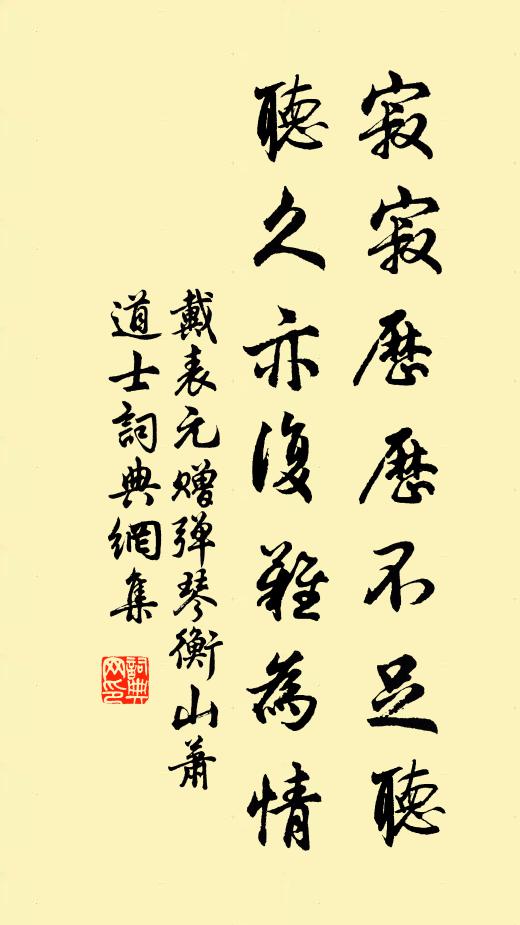 寂寂歷歷不足聽
聽久亦復難為情
戴表元赠弹琴衡山萧
道士詞典網集
詞典網印